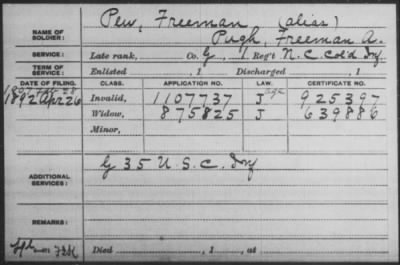 Pew, Freeman (alias)
NAME OF SOLDIER: Pugh, Freeman A.
SERVICE: Late rank, Co. G, 1 Reg't N.C. Col'd Inf
TERM OF SERVICE: Enlisted , 1 Discharged , 1
DATE OF FILING. CLASS. APPLICATION NO. LAW. CERTIFICATE NO.
Invalid, 1107737 J age 925397
1892 Apr 26 Widow, 875825 J 639886
Minor,
ADDITIONAL SERVICES: G 35 U.S.C. Inf
REMARKS:
Died , 1 , at